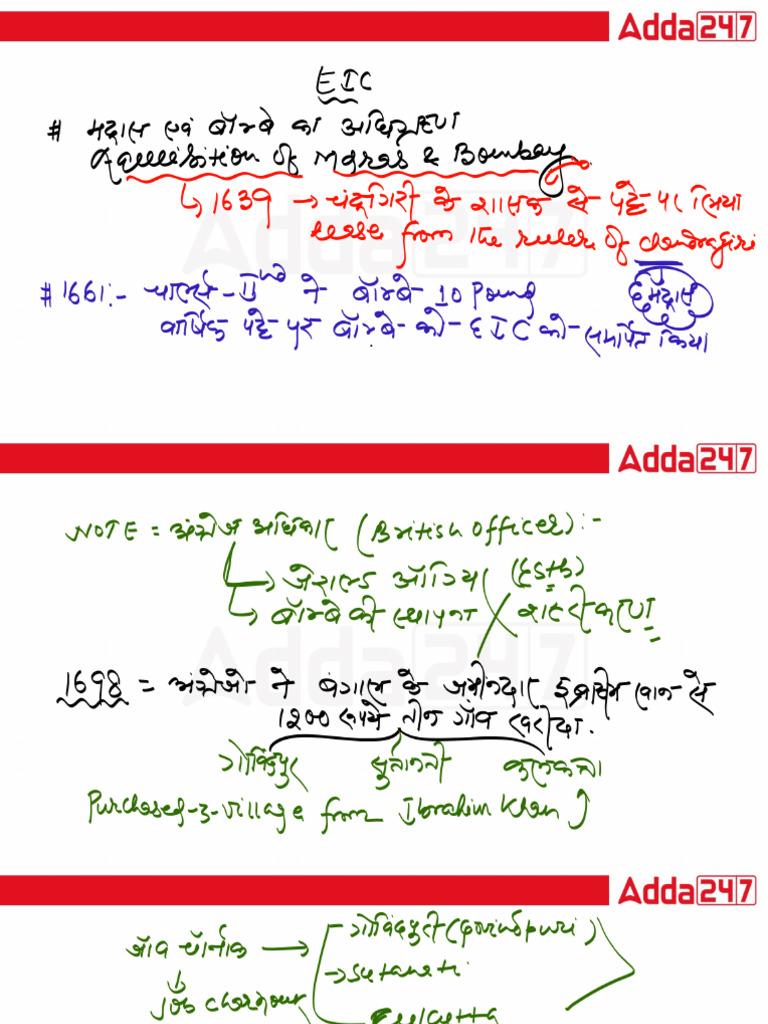 Adda247
EIC
# मद्रास एवं बॉम्बे का अधिग्रहण
Acquisition of Madras & Bombay.
↳ 1639 → चंद्रगिरी के शासक से पट्टे पर लिया
lease from the ruler of chandragiri
मद्रास
# 1661:- चार्ल्स-IInd ने बॉम्बे 10 Pound
वार्षिक पट्टे पर बॉम्बे को EIC को समर्पित किया
Adda247
NOTE = अंग्रेज अधिकारी (British officer):-
→ जेराल्ड ऑंगियर
→ बॉम्बे की स्थापना / शहरीकरण
1698 = अंग्रेजो ने बंगाल के जमीनदार इब्राहिम खान से
1200 रूपये तीन गाँव खरीदा.
गोविंदपुर सुतानती कलकत्ता
Purchased-3-village from Ibrahim Khan
Adda247
जॉब चॉर्नाक → गोविंदपुरी (Govindpuri)
→ Sutanati
Job Charnour
Calcutta